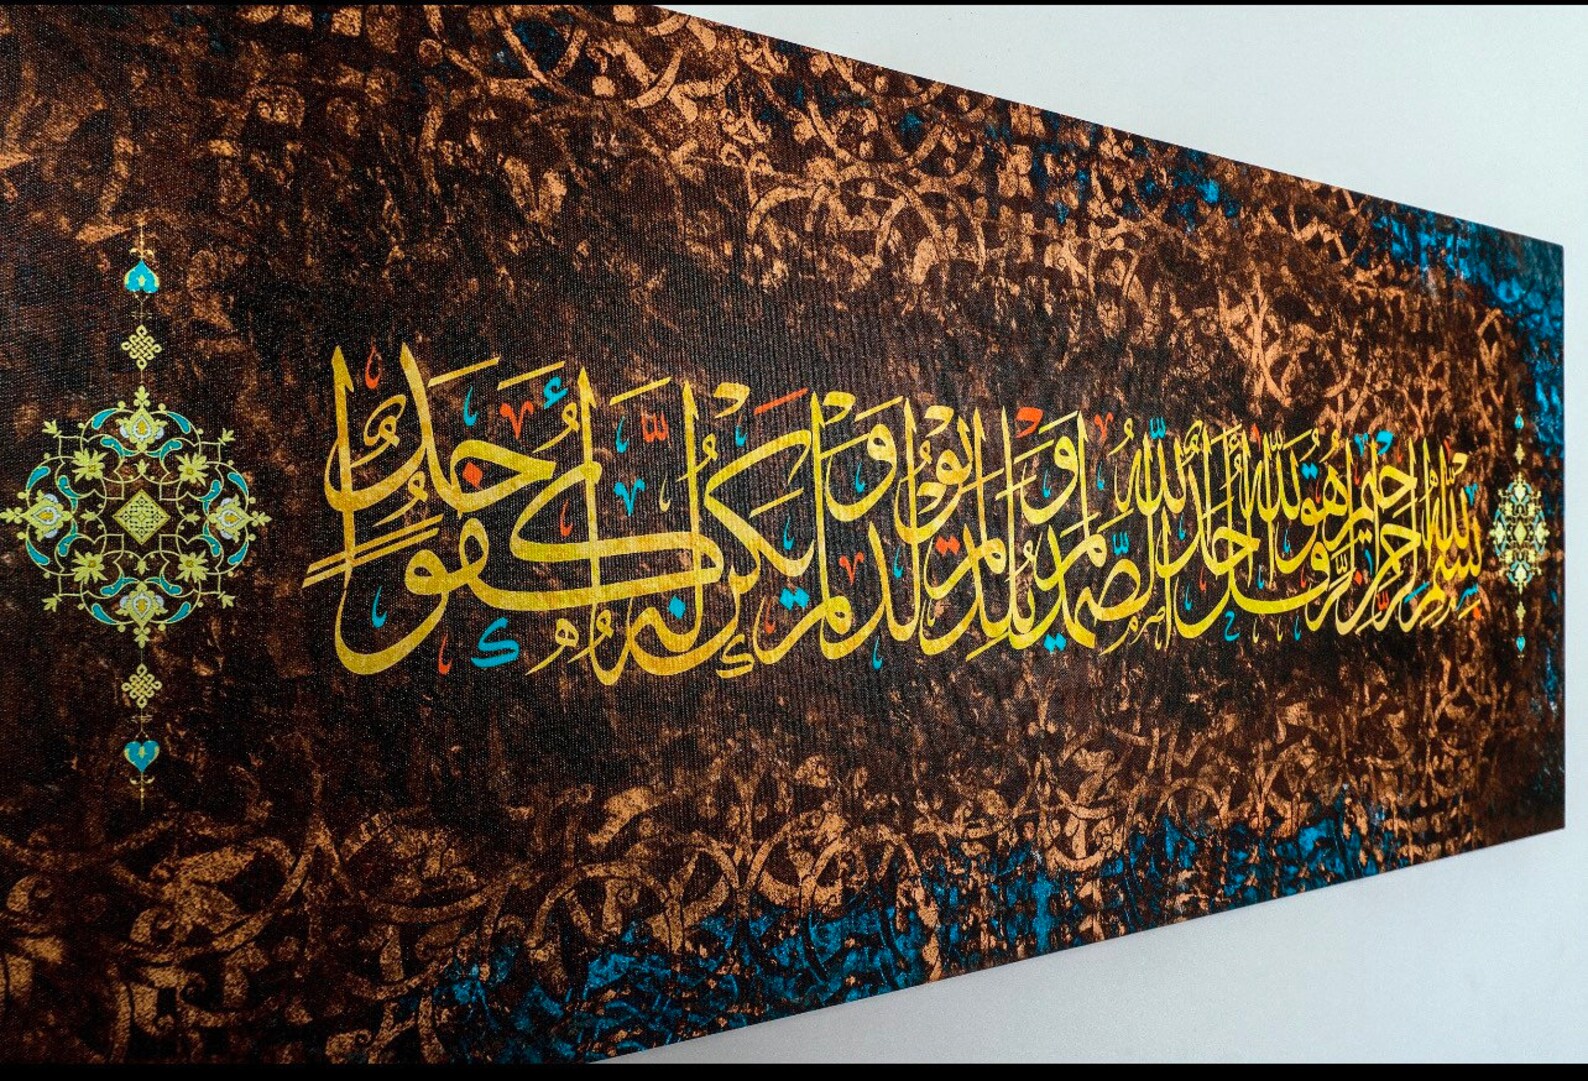 بِسْمِ اللَّهِ الرَّحْمَٰنِ الرَّحِيمِ قُلْ هُوَ اللَّهُ أَحَدٌ اللَّهُ الصَّمَدُ لَمْ يَلِدْ وَلَمْ يُولَدْ وَلَمْ يَكُنْ لَهُ كُفُوًا أَحَدٌ